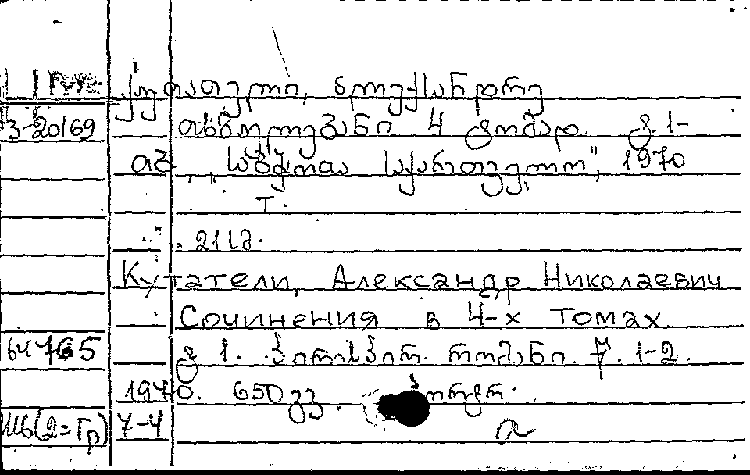 ქუთათელი, ალექსანდრე
3-20169 თხზულებანი 4 ტომად. ტ. 1-
თბ., "საბჭოთა საქართველო", 1970
т.
21 სმ.
Кутатели, Александр Николаевич
Сочинения в 4-х томах.
64765 ტ. 1. პირისპირ. რომანი. წ. 1-2.
1970. 650 გვ. პორტრ.
Ш6(2=Гр) 7-4